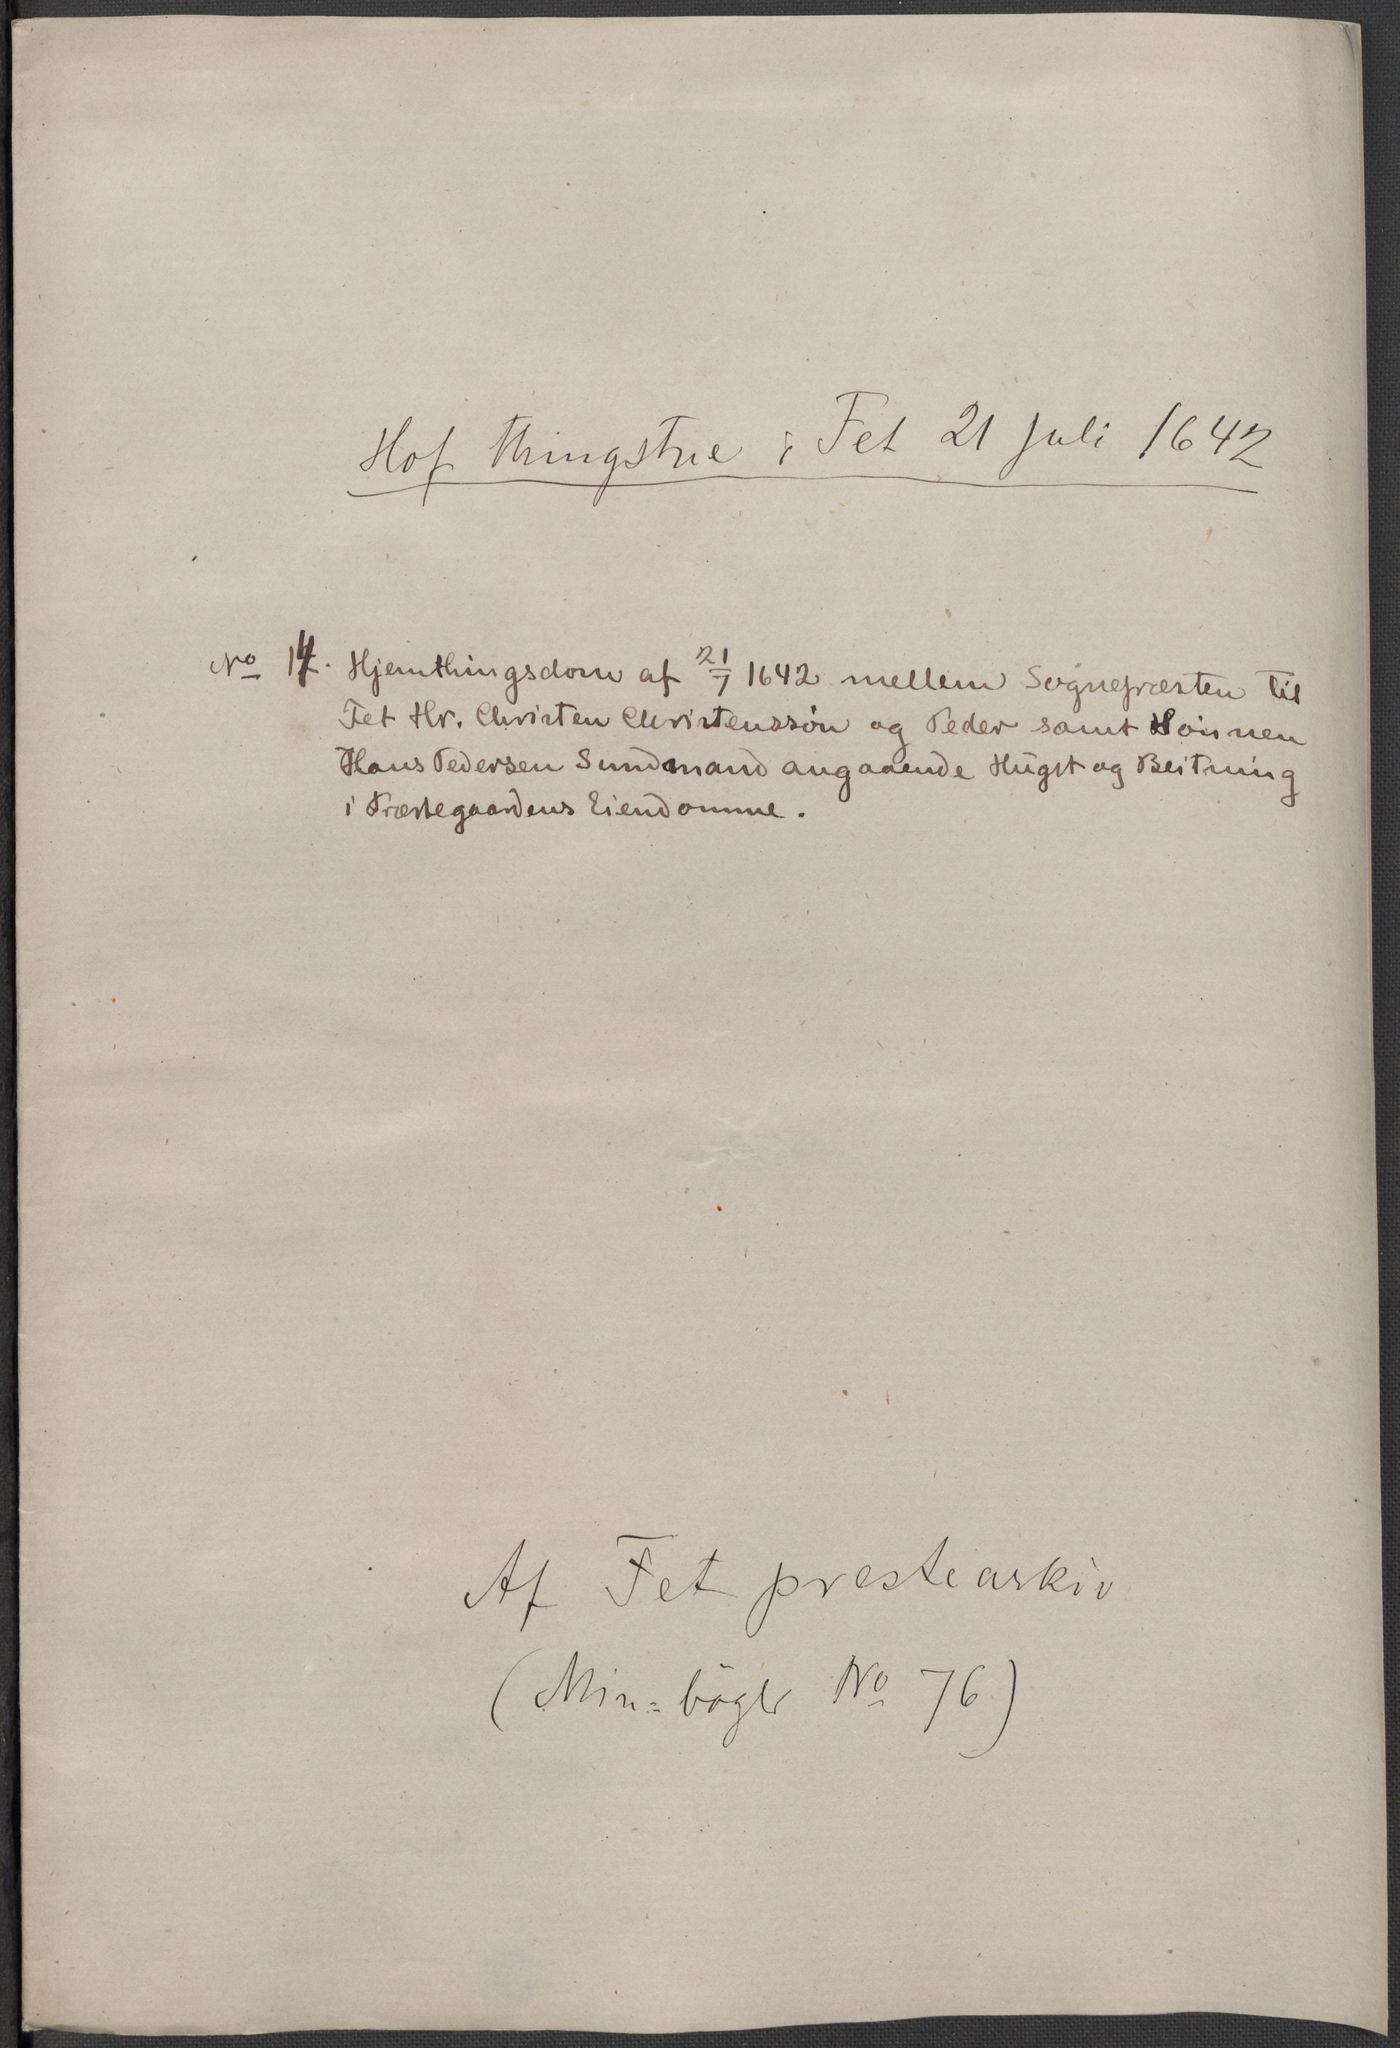 Hof thingstue i Fet 21 Juli 1642
No 14. Hjemthingsdom af 21/7 1642 mellem Sognepræsten til
Fet Hr. Christen Christenssön og Peder samt Sönnen
Hans Pedersen Sundmand angaaende Hugst og Beitning
i Præstegaardens Eiendomme.
Af Fet prestearkiv
(Min=bøger No 76)